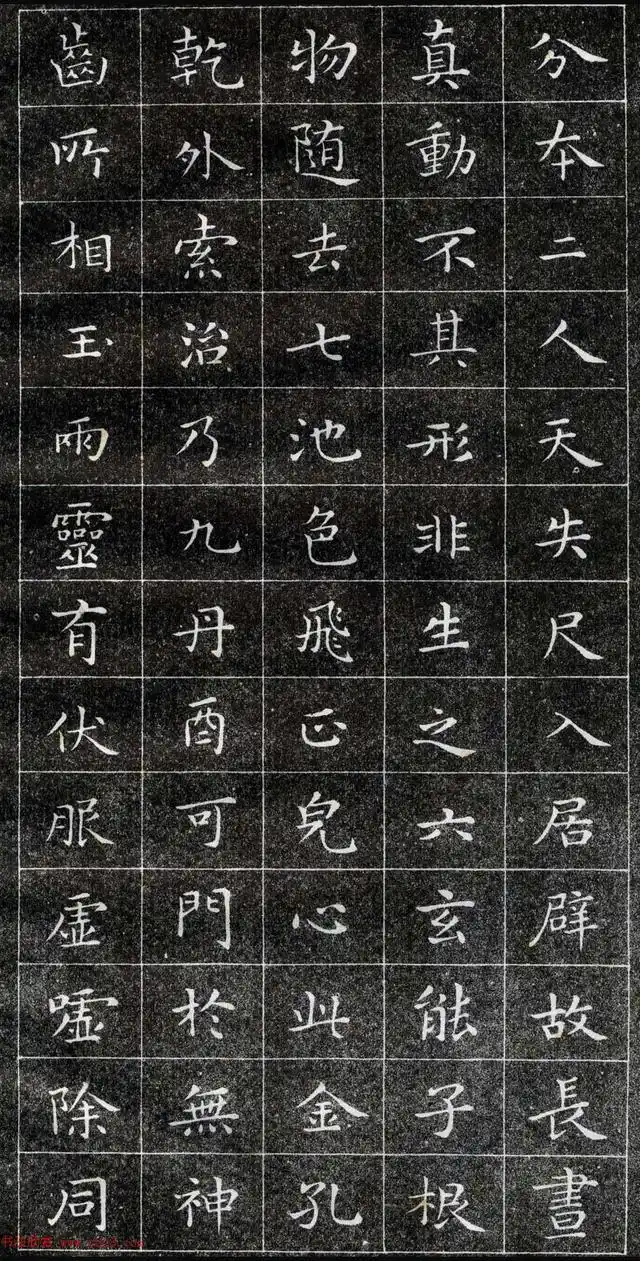 分本二人天失尺入居辟故長晝
真動不其形非生之六玄能子根
物随去七池色飛正皃心此金孔
乾外索治乃九丹酉可門於無神
齒所相玉雨靈有伏服虛嘘除同